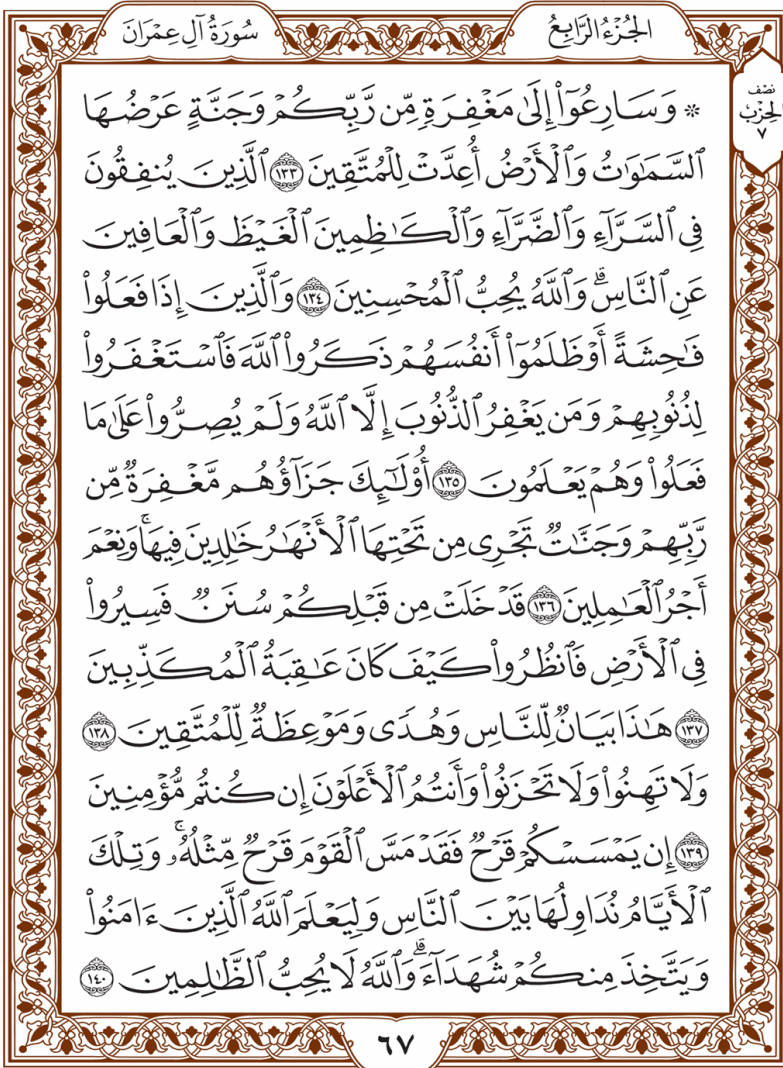 الجُزْءُ الرَّابِعُ
سُورَةُ آلِ عِمْرَانَ
نصف
الحِزْبِ
٧
۞ وَسَارِعُوٓاْ إِلَىٰ مَغْفِرَةٖ مِّن رَّبِّكُمْ وَجَنَّةٍ عَرْضُهَا
ٱلسَّمَٰوَٰتُ وَٱلْأَرْضُ أُعِدَّتْ لِلْمُتَّقِينَ ١٣٣ ٱلَّذِينَ يُنفِقُونَ
فِي ٱلسَّرَّآءِ وَٱلضَّرَّآءِ وَٱلْكَٰظِمِينَ ٱلْغَيْظَ وَٱلْعَافِينَ
عَنِ ٱلنَّاسِۗ وَٱللَّهُ يُحِبُّ ٱلْمُحْسِنِينَ ١٣٤ وَٱلَّذِينَ إِذَا فَعَلُواْ
فَٰحِشَةً أَوْ ظَلَمُوٓاْ أَنفُسَهُمْ ذَكَرُواْ ٱللَّهَ فَٱسْتَغْفَرُواْ
لِذُنُوبِهِمْ وَمَن يَغْفِرُ ٱلذُّنُوبَ إِلَّا ٱللَّهُ وَلَمْ يُصِرُّواْ عَلَىٰ مَا
فَعَلُواْ وَهُمْ يَعْلَمُونَ ١٣٥ أُوْلَٰٓئِكَ جَزَآؤُهُم مَّغْفِرَةٞ مِّن
رَّبِّهِمْ وَجَنَّٰتٞ تَجْرِي مِن تَحْتِهَا ٱلْأَنْهَٰرُ خَٰلِدِينَ فِيهَاۚ وَنِعْمَ
أَجْرُ ٱلْعَٰمِلِينَ ١٣٦ قَدْ خَلَتْ مِن قَبْلِكُمْ سُنَنٞ فَسِيرُواْ
فِي ٱلْأَرْضِ فَٱنظُرُواْ كَيْفَ كَانَ عَٰقِبَةُ ٱلْمُكَذِّبِينَ
١٣٧ هَٰذَا بَيَانٞ لِّلنَّاسِ وَهُدٗى وَمَوْعِظَةٞ لِّلْمُتَّقِينَ ١٣٨
وَلَا تَهِنُواْ وَلَا تَحْزَنُواْ وَأَنتُمُ ٱلْأَعْلَوْنَ إِن كُنتُم مُّؤْمِنِينَ
١٣٩ إِن يَمْسَسْكُمْ قَرْحٞ فَقَدْ مَسَّ ٱلْقَوْمَ قَرْحٞ مِّثْلُهُۥۚ وَتِلْكَ
ٱلْأَيَّامُ نُدَاوِلُهَا بَيْنَ ٱلنَّاسِ وَلِيَعْلَمَ ٱللَّهُ ٱلَّذِينَ ءَامَنُواْ
وَيَتَّخِذَ مِنكُمْ شُهَدَآءَۗ وَٱللَّهُ لَا يُحِبُّ ٱلظَّٰلِمِينَ ١٤٠
٦٧